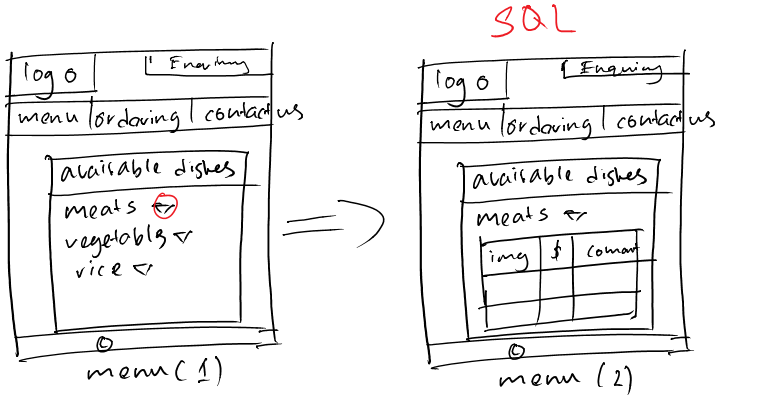 SQL
logo
Enquiry
menu ordering contact us
available dishes
meats
vegetable
rice
©
menu (1)
logo
Enquiry
menu ordering contact us
available dishes
meats
img $ coment
©
menu (2)